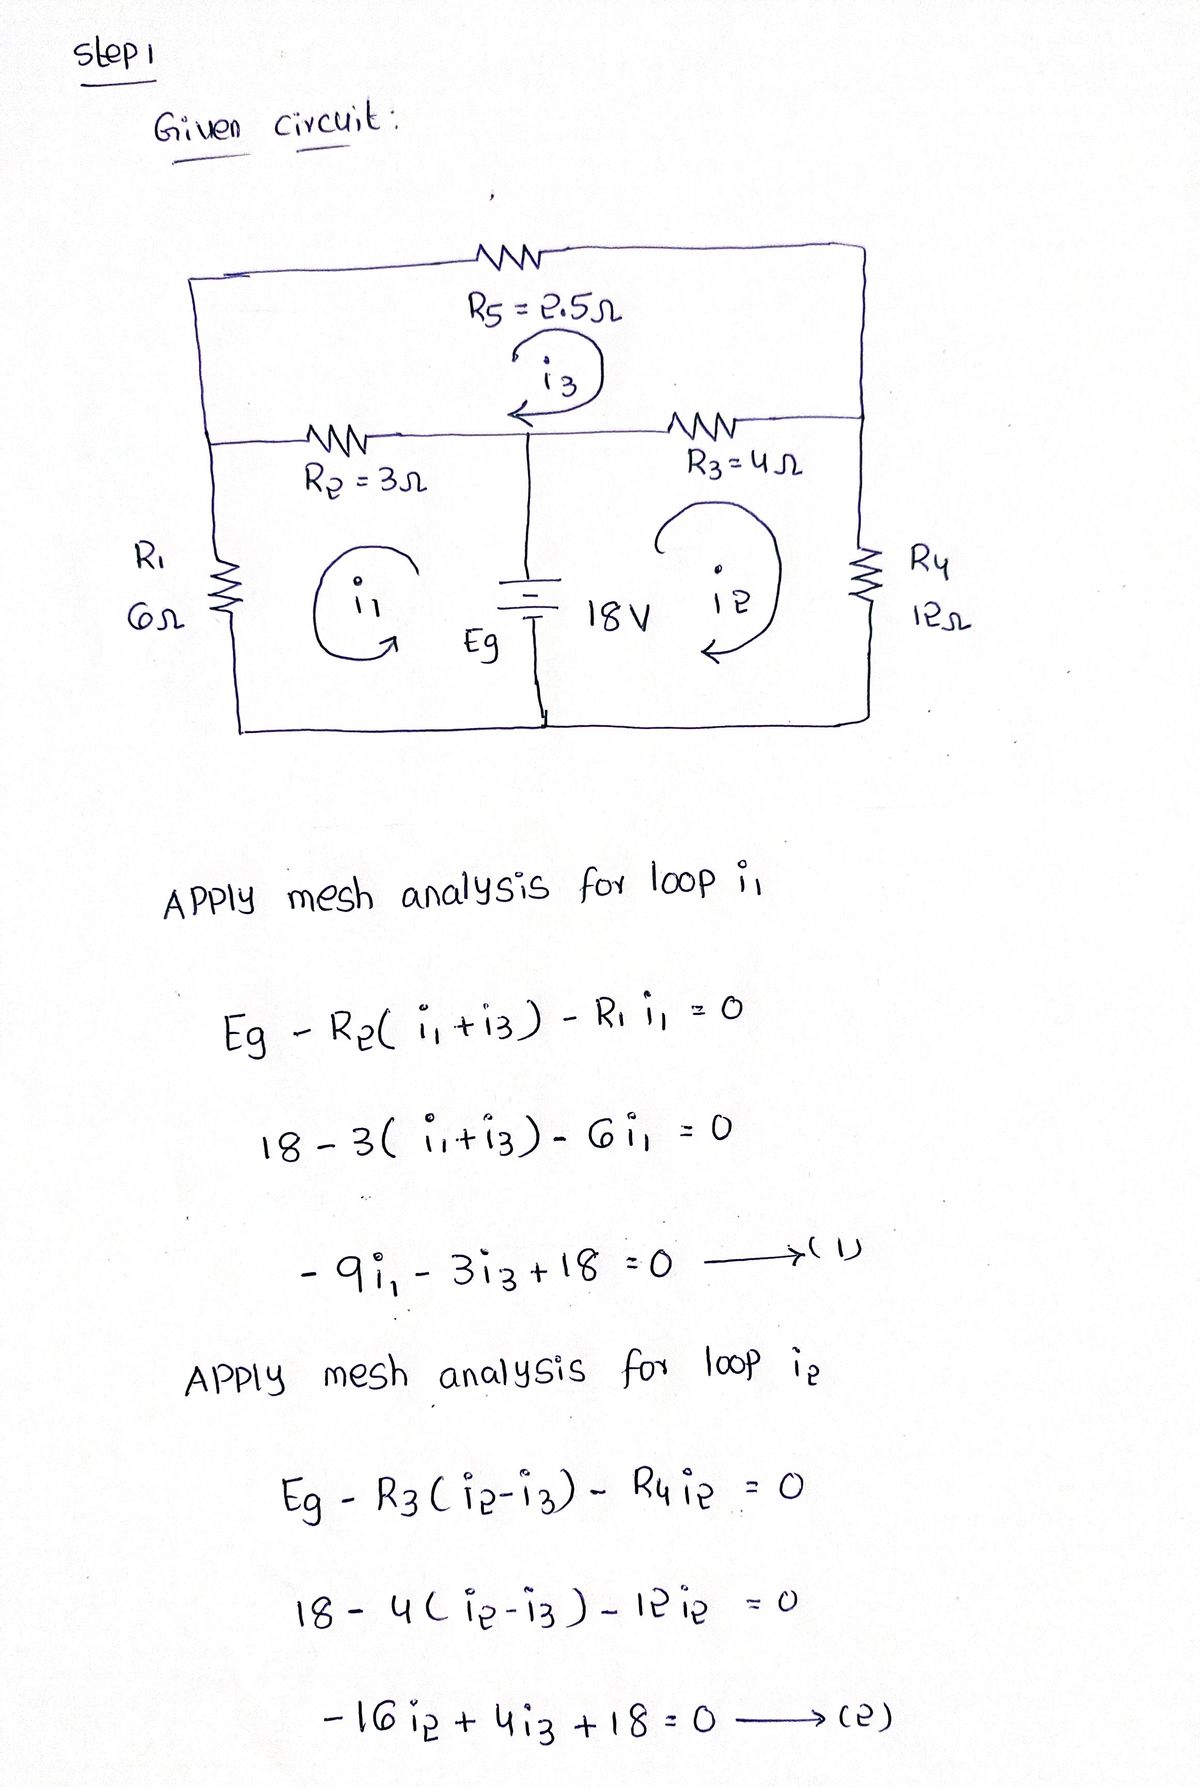 Step 1
Given circuit:
R5 = 2.5Ω
i3
R2 = 3Ω
R3 = 4Ω
R1
6Ω
i1
Eg
18V
i2
R4
12Ω
APPly mesh analysis for loop i1
Eg - R2( i1 + i3 ) - R1 i1 = 0
18 - 3( i1 + i3 ) - 6 i1 = 0
- 9i1 - 3i3 + 18 = 0 ⟶ (1)
APPly mesh analysis for loop i2
Eg - R3 ( i2 - i3 ) - R4 i2 = 0
18 - 4 ( i2 - i3 ) - 12 i2 = 0
- 16 i2 + 4i3 + 18 = 0 ⟶ (2)